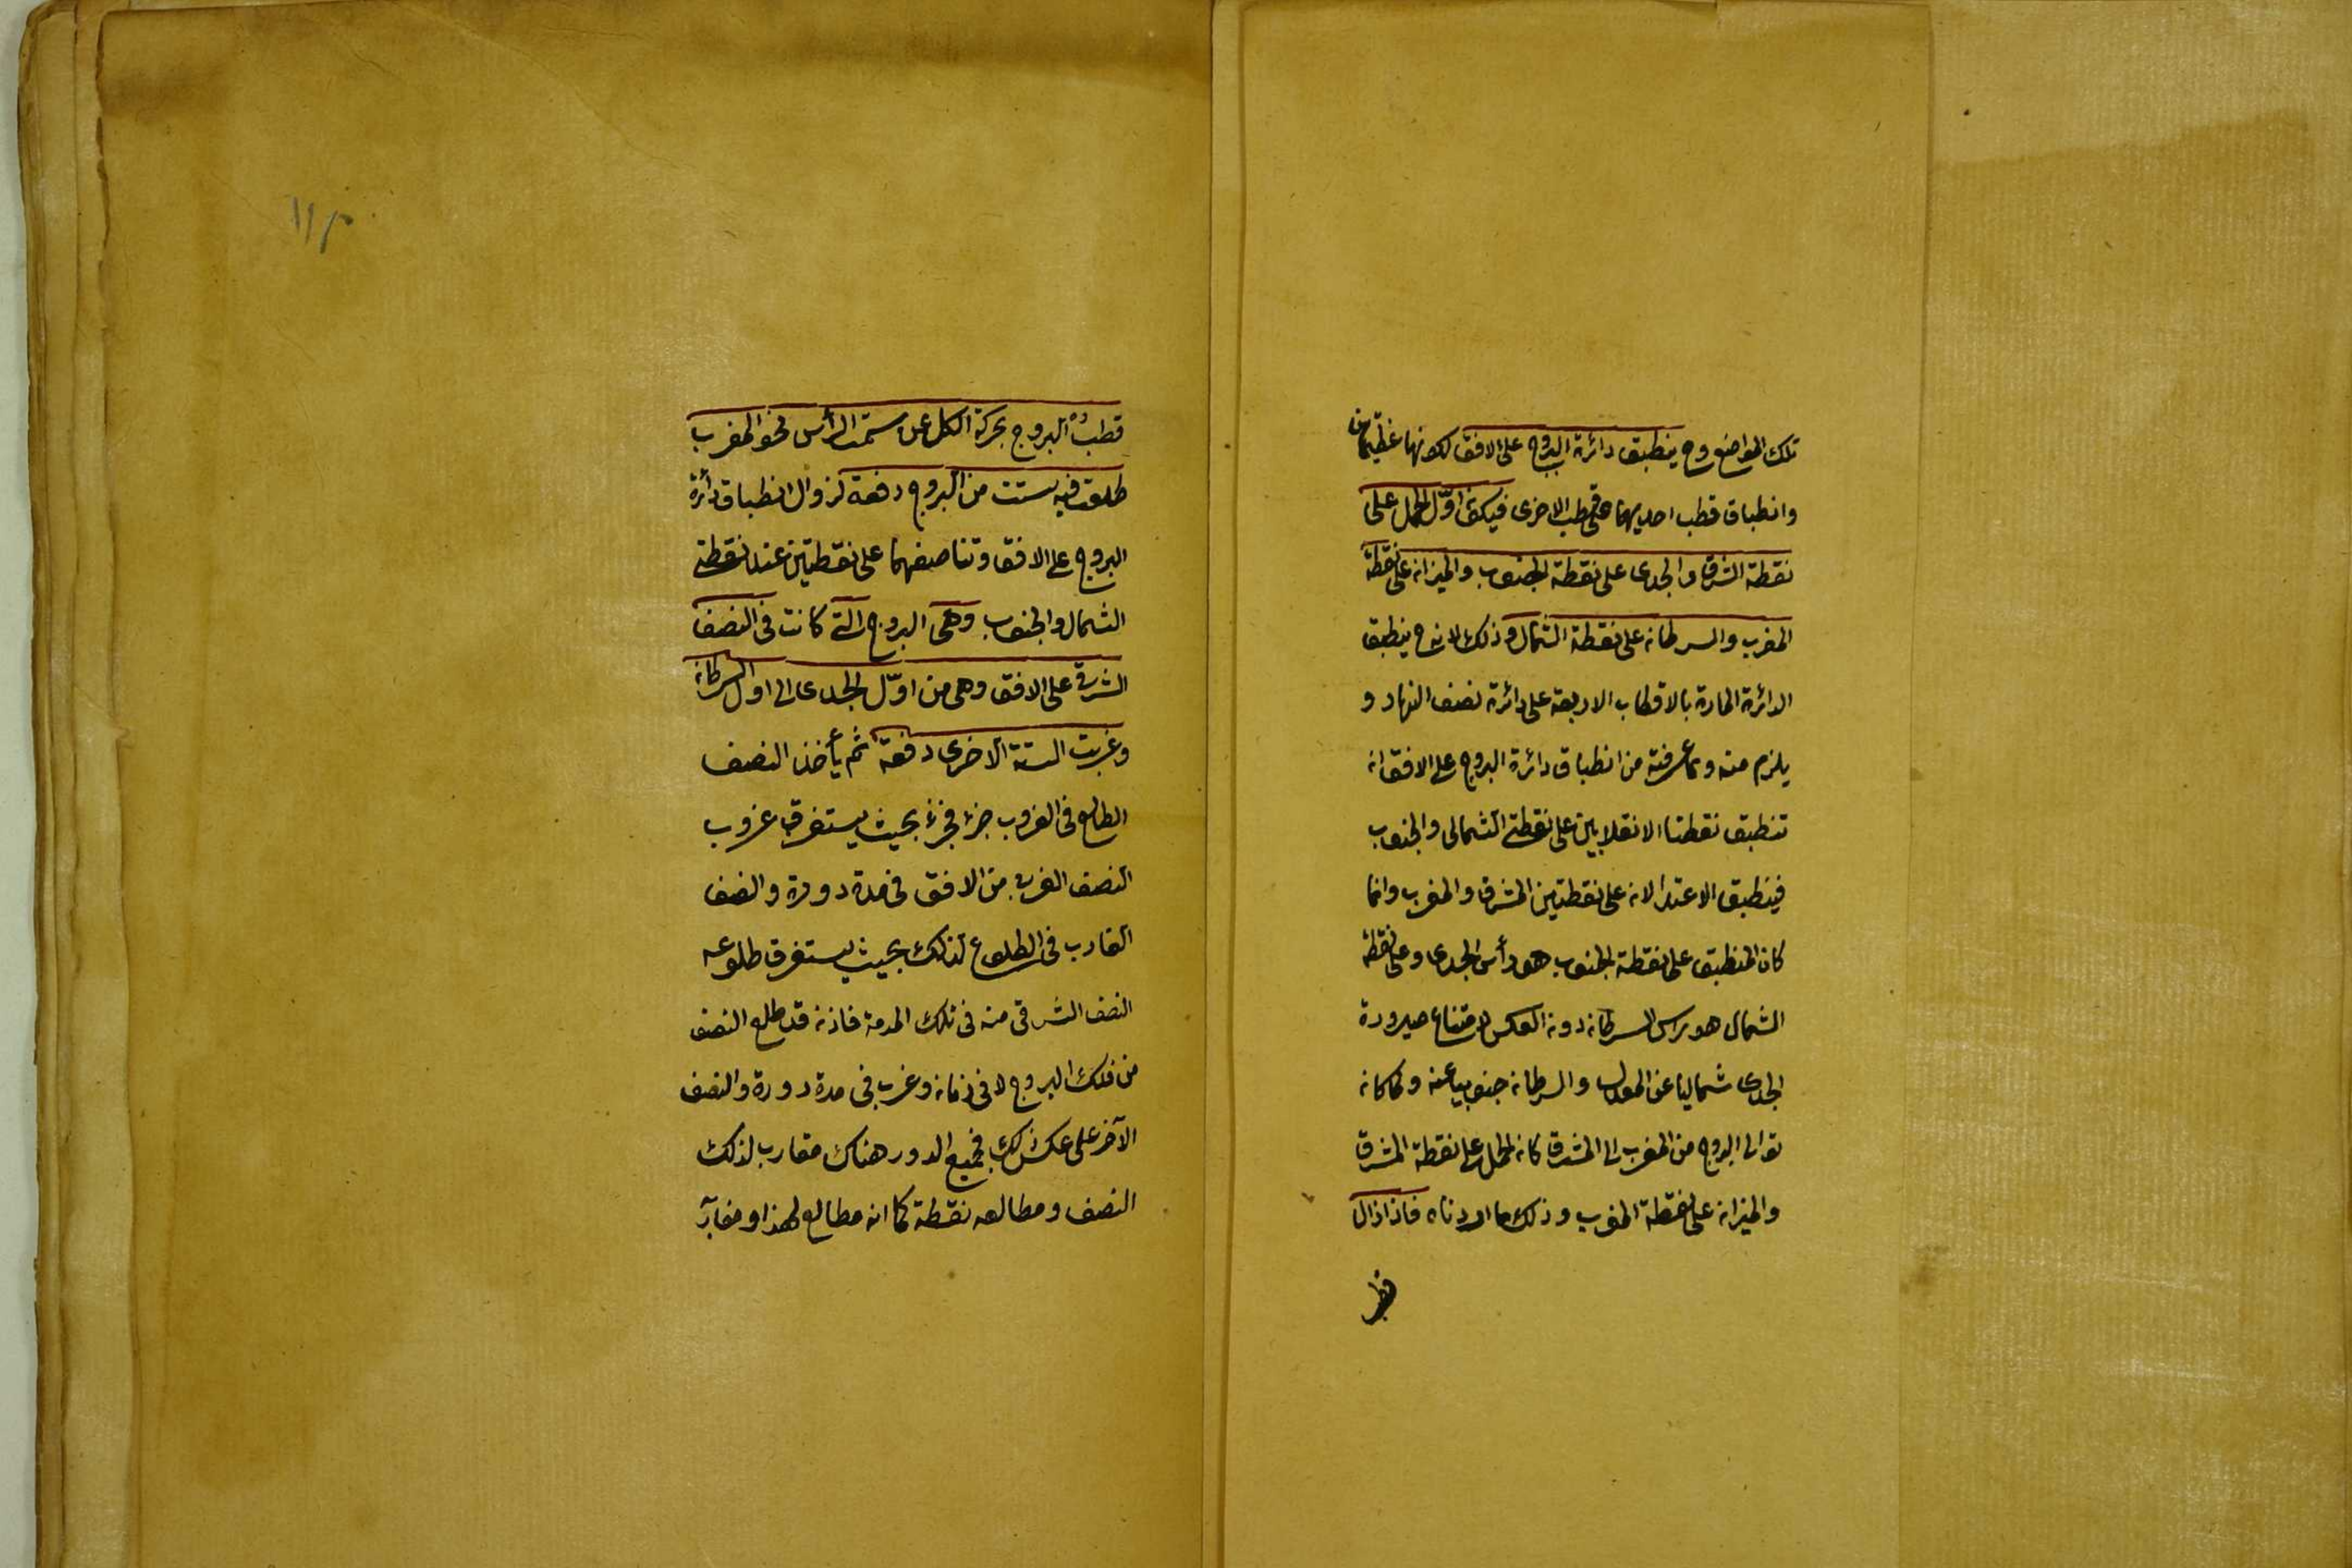 تلك المواضع وح ينطبق دائرة البروج على الافق لكونهما عظيمتان
وانطباق قطب احديهما على قطب الاخرى فيكون اوّل الحمل على
نقطة الشرق والجدى على نقطة الجنوب والميزان على نقطة
المغرب والسرطان على نقطة الشمال وذلك لانه ح ينطبق
الدائرة المارة بالاقطاب الاربعة على دائرة نصف النهار و
يلزم منه ومما عرفته من انطباق دائرة البروج على الافق ان
تنطبق نقطتا الانقلابين على نقطتى الشمالى والجنوب
فينطبق الاعتدالان على نقطتين المشرق والمغرب وانما
كان المنطبق على نقطة الجنوب هو رأس الجدى وعلى نقطة
الشمال هو راس السرطان دون العكس لامتناع صيرورة
الجدى شماليا عن المعدل والسرطان جنوبيا عنه ولما كان
توالى البروج من المغرب الى المشرق كان الحمل على نقطة المشرق
والميزان على نقطة المغرب وذلك ما اردناه فاذا زال
قطب
قطب دائرة البروج بحركة الكل عن سمت الرأس نحو المغرب
طلعت فيه ست من البروج دفعة لزوال انطباق دائرة
البروج على الافق وتناصفهما على نقطتين عند نقطتى
الشمال والجنوب وهى البروج التى كانت فى النصف
الشرقى على الافق وهى من اوّل الجدى الى اول السرطان
وغربت الستة الاخرى دفعة ثم يأخذ النصف
الطالع فى الغروب جزء فجزء بحيث يستغرق غروب
النصف الغربى من الافق فى مدة دورة والنصف
الغارب فى الطلوع كذلك بحيث يستغرق طلوعه
النصف الشرقى منه فى تلك المدة فاذن قد طلع النصف
من فلك البروج لا فى زمان وغرب فى مدة دورة والنصف
الآخر على عكس ذلك فجميع الدور هناك مغارب لذلك
النصف ومطالعه نقطة كما انه مطالع لهذا ومغاربه